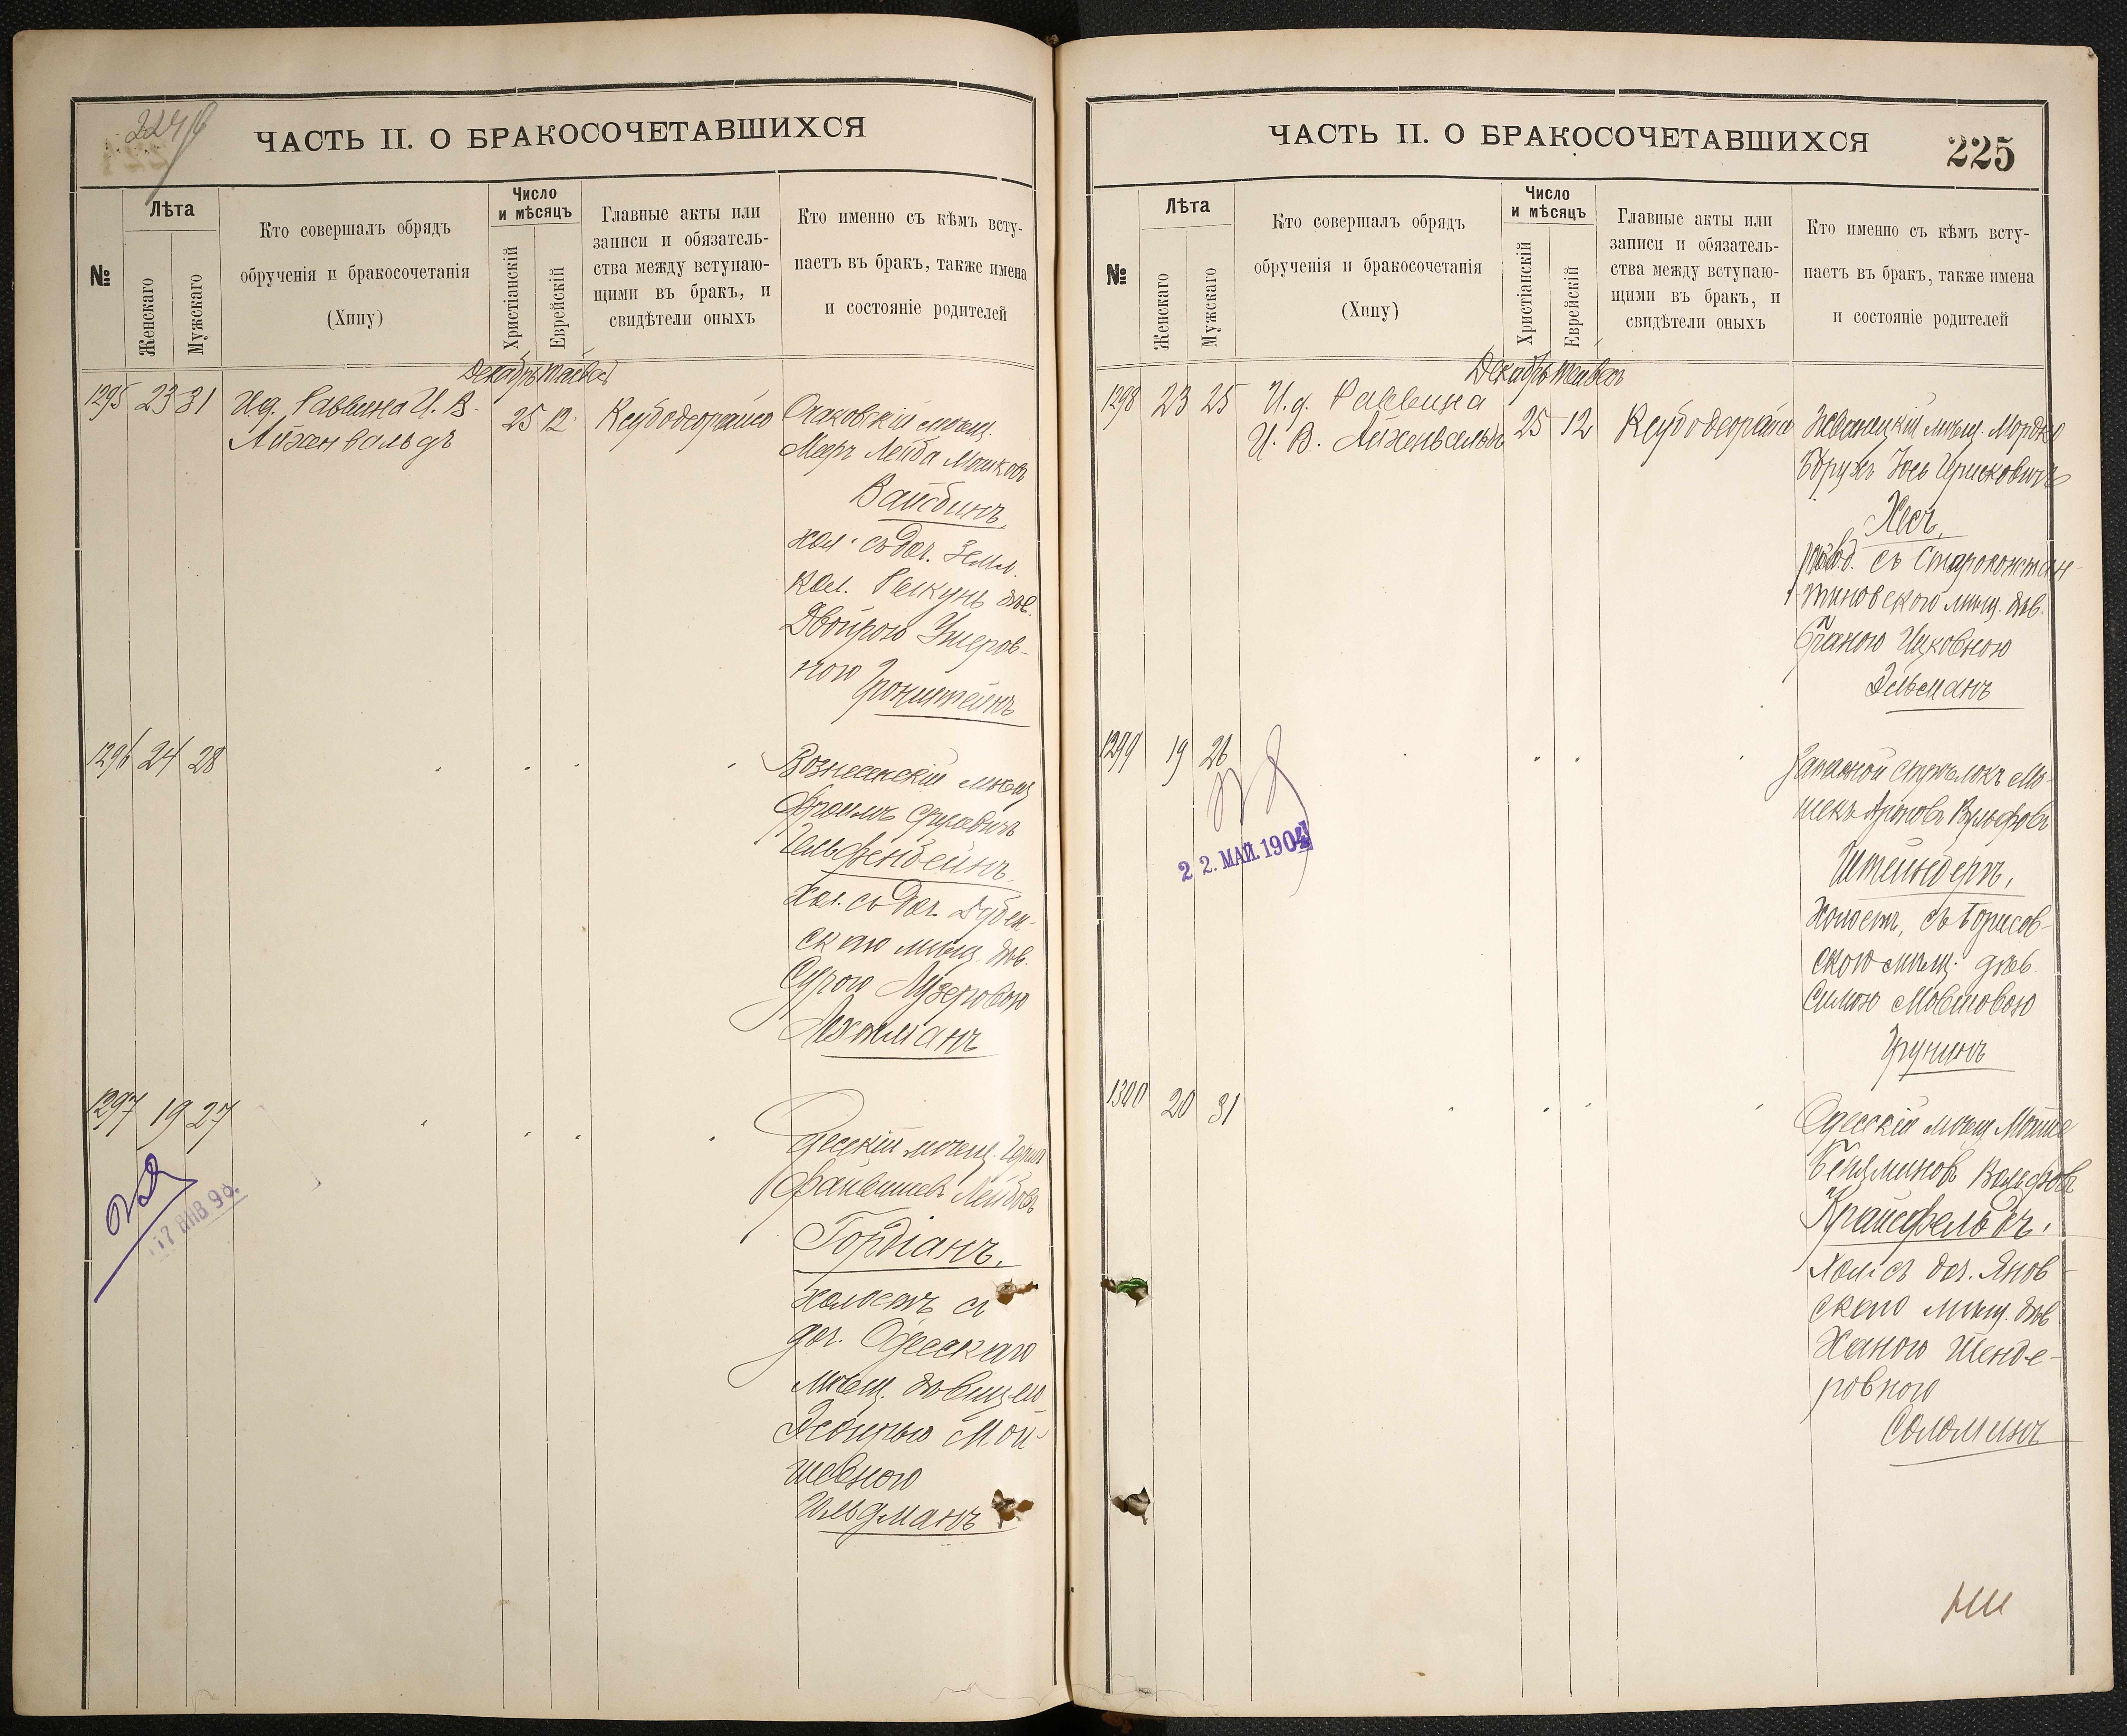 224/б
ЧАСТЬ II. О БРАКОСОЧЕТАВШИХСЯ
№
Лѣта
Женскаго
Мужскаго
Кто совершалъ обрядъ
обрученія и бракосочетанія
(Хипу)
Число
и мѣсяцъ
Христіанскій
Еврейскій
Главные акты или
записи и обязатель-
ства между вступаю-
щими въ бракъ, и
свидѣтели оныхъ
Кто именно съ кѣмъ всту-
паетъ въ бракъ, также имена
и состояніе родителей
Декабрь Тейвес
1295 23 31 И.д. Раввина И. В.
Айхенвальдъ
25 12
Ксубо деорайсо
Очаковскій мѣщ.
Мееръ Лейба Мошковъ
Вайсбинъ
хол. съ доч. Земл.
кол. дѣв.
Двойрою Ушеров-
ною
Гронштейнъ
1296 24 28
Вознесенскій мѣщ
Фроимъ Сруле­вичъ
Гельфенбейнъ
Хол. съ доч. Дубен-
скаго мѣщ. дѣв.
Сурою Лузеровою
Лехтманъ
1297 19 27
17 ЯНВ 9
Одесскій мѣщ. Герш
Файвишевъ Лейбовъ
Гордіанъ,
холостъ съ
доч. Одесскаго
мѣщ. дѣвицею
Эсфирью Мой-
шевною
Гельдманъ
ЧАСТЬ II. О БРАКОСОЧЕТАВШИХСЯ
225
№
Лѣта
Женскаго
Мужскаго
Кто совершалъ обрядъ
обрученія и бракосочетанія
(Хипу)
Число
и мѣсяцъ
Христіанскій
Еврейскій
Главные акты или
записи и обязатель-
ства между вступаю-
щими въ бракъ, и
свидѣтели оныхъ
Кто именно съ кѣмъ всту-
паетъ въ бракъ, также имена
и состояніе родителей
Декабрь Тейвес
1298 23 25 И.д. Раввина
И. В. Айхенвальдъ
25 12
Ксубо деорайсо
Жванецкій мѣщ. Мордко
Борухъ Іось
Хесъ,
развод. съ Староконстан-
тиновскою мѣщ. дѣв.
Ицковною
Дельманъ
1299 19 26
22. МАЙ. 1904
Запасной стрѣлокъ Мо-
шекъ Ароновъ Вульфовъ
Штейндеръ,
Холостъ, съ Борисов-
скою мѣщ. дѣв.
Симою Мовшовою
Грунинъ
1300 20 31
Одесскій мѣщ. Мойше
Беньяминовъ Вольфовъ
Крайсфельдъ,
Хол. съ доч. Янов-
скаго мѣщ. дѣв.
Ханою Шенде-
ровною
Соломинъ